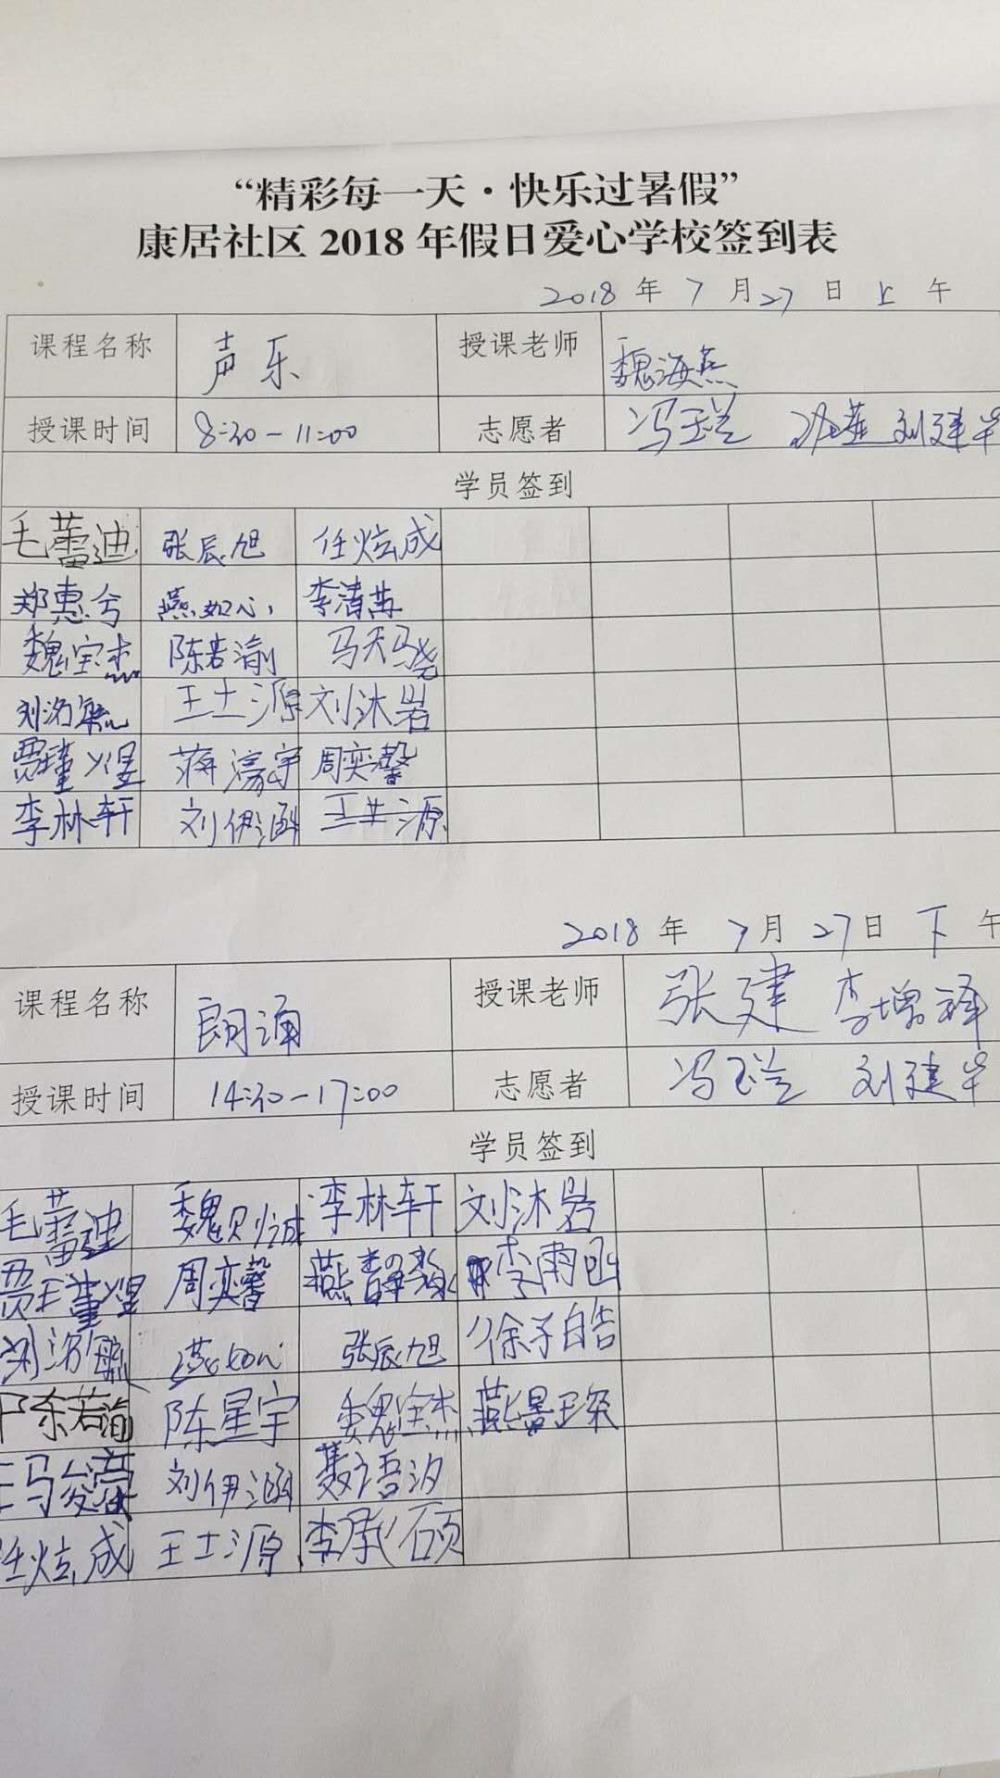 “精彩每一天·快乐过暑假”
康居社区 2018 年假日爱心学校签到表
2018 年 7 月 27 日 上 午
课程名称 声乐 授课老师 魏海燕
授课时间 8:30-11:00 志愿者 冯玉兰 刘建华
学员签到
毛蕾迪 张辰旭 任炫成
郑惠兮 燕如心 李清苒
魏宝杰 陈若渝 马天骁
刘洺毓 王士源 刘沐岩
贾瑾煜 蒋濠宇 周奕馨
李林轩 刘伊涵 王士源
2018 年 7 月 27 日 下 午
课程名称 朗诵 授课老师 张建 李增祥
授课时间 14:30-17:00 志愿者 冯玉兰 刘建华
学员签到
毛蕾迪 魏则诚 李林轩 刘沐岩
贾瑾煜 周奕馨 燕静 李雨函
刘洺毓 张辰旭 徐子皓
陈若渝 陈星宇 魏宝杰 燕景琛
马俊豪 刘伊涵 聂语汐
任炫成 王士源 李承硕